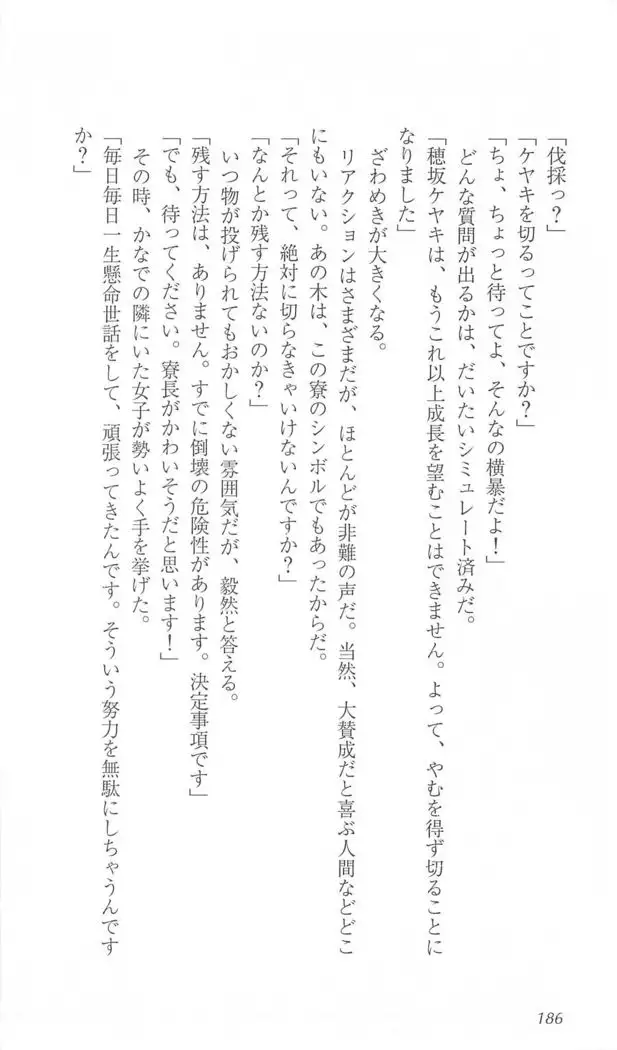 「伐採っ？」
「ケヤキを切るってことですか？」
「ちょ、ちょっと待ってよ、そんなの横暴だよ！」
どんな質問が出るかは、だいたいシミュレート済みだ。
「穂坂ケヤキは、もうこれ以上成長を望むことはできません。よって、やむを得ず切ることに
なりました」
ざわめきが大きくなる。
リアクションはさまざまだが、ほとんどが非難の声だ。当然、大賛成だと喜ぶ人間などどこ
にもいない。あの木は、この寮のシンボルでもあったからだ。
「それって、絶対に切らなきゃいけないんですか？」
「なんとか残す方法ないのか？」
いつ物が投げられてもおかしくない雰囲気だが、毅然と答える。
「残す方法は、ありません。すでに倒壊の危険性があります。決定事項です」
「でも、待ってください。寮長がかわいそうだと思います！」
その時、かなでの隣にいた女子が勢いよく手を挙げた。
「毎日毎日一生懸命世話をして、頑張ってきたんです。そういう努力を無駄にしちゃうんです
か？」
186